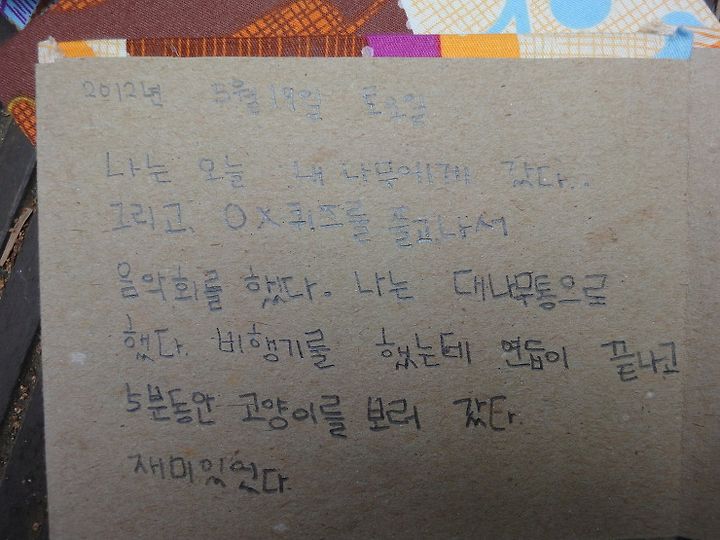 2012년 5월 19일 토요일
나는 오늘 내 나무에게 갔다..
그리고, OX퀴즈를 풀고나서
음악회를 했다. 나는 대나무통으로
했다. 비행기를 했는데 연듭이 끝나고
5분동안 고양이를 보러 갔다.
재미있엇다.